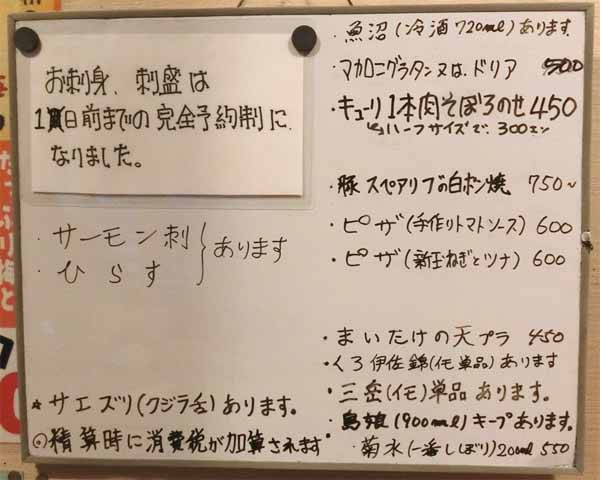 お刺身、刺盛は
1日前までの完全予約制に
なりました。
・サーモン刺
・ひらす
あります
★サエズリ(クジラ舌)あります。
◎精算時に消費税が加算されます
・魚沼(冷酒720ml)あります
・マカロニグラタン又は、ドリア 500
・キューリ1本肉そぼろのせ450
ハーフサイズで、300エン
・豚スペアリブの白ポン焼 750~
・ピザ(手作りトマトソース)600
・ピザ(新玉ねぎとツナ)600
・まいたけの天プラ 450
・くろ伊佐錦(イモ単品)あります
・三岳(イモ)単品あります。
・島娘(900ml)キープあります。
・菊水(一番しぼり)200ml 550